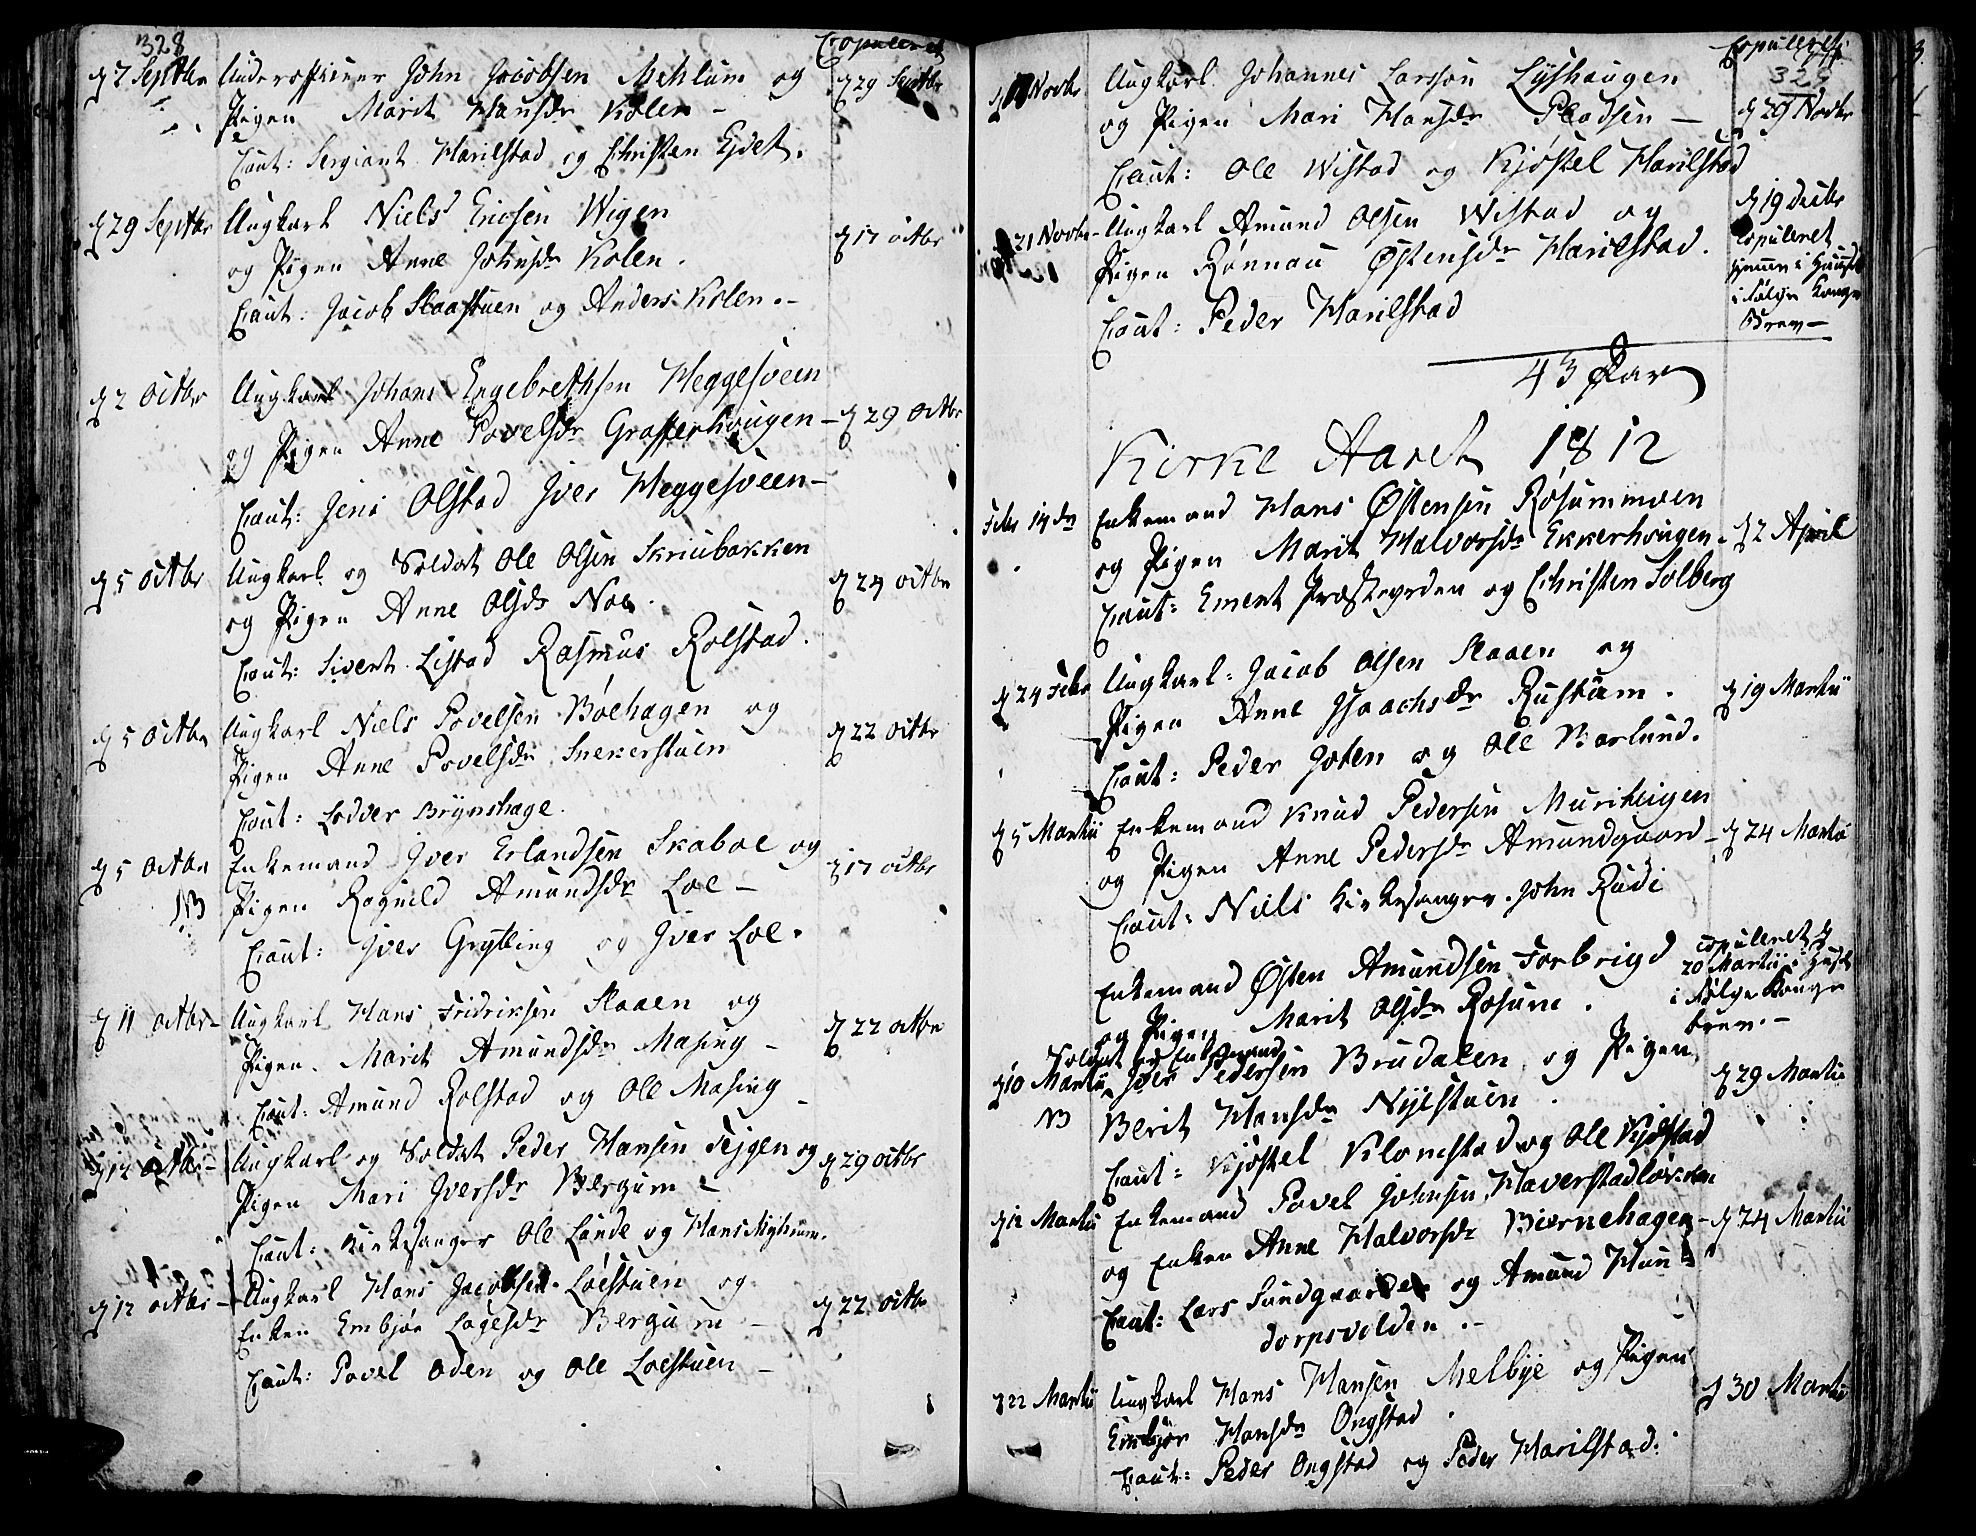 328
Copuleret
d 7 Septbr Underofficeer John Jacobsen Mehlum og d 29 Septbr
Pigen Marit Hansdr Kolen –
Caut: Sergiant Harilstad og Christen Eidet.
d 29 Septbr Ungkarl Niels Ericsen Wigen d 17 octbr
og Pigen Anne Johnsdr Kolen.
Caut: Jacob Slaastuen og Anders Kolen.–
d 2 Octbr Ungkarl Johans Engebrethsen Heggesveen
og Pigen Anne Povelsdr Grafferhougen – d 29 Octbr
Caut: Jens Olstad Iver Heggesveen –
d 5 Octbr Ungkarl og Soldat Ole Olsen Skriubakken d 24 Octbr
og Pigen Anne Olsdr Noe.
Caut: Sivert Listad Rasmus Rolstad.
d 5 Octbr Ungkarl Niels Povelsen Böehagen og d 22 Octbr
Pigen Anne Povelsdr Snekerstuen
Caut: Lodver Brynshage.
d 5 Octbr Enkemand Iver Erlandsen Skaboe og d 17 octbr
NB Pigen Ragnild Amundsdr Loe –
Caut: Iver Grytting og Iver Loe.
d 11 octbr – Ungkarl Hans Fridriksen Slaaen og d 22 octbr
Pigen Marit Amundsdr Masing –
Caut: Amund Rolstad og Ole Masing –
d 12 Octbr – Ungkarl og Soldat Peder Hansen Tejgen og d 29 octbr
Pigen Mari Iversdr Bergum –
Caut: Kirkesanger Ole Lunde og Hans
d 12 octbr – Ungkarl Hans Jacobsen Loestuen og d 22 octbr
Enken Embjør Lagesdr Bergum –
Caut: Povel Oden og Ole Loestuen –
Copuleret
329
Novbr Ungkarl Johannes Larsson Lyshaugen d 29 Novbr
og Pigen Mari Hansdr Pladsen –
Caut: Ole Wistad og Kjøstel Harilstad
d 21 Novbr – Ungkarl Amund Olsen Wistad og d 19 Decbr
Pigen Rønnau Østensdr Harilstad. Copuleret
hjemme i Huuset
Caut: Peder Harilstad i følge Konge
Brev –
43 Par
Kirke Aaret 1812
Febr 14de Enkemand Hans Østensen Rosummoen
og Pigen Marit Halvorsdr Ekkerhougen – d 2 April
Caut: Ement Præstegrden og Christen Solberg
d 24 Febr Ungkarl: Jacob Olsen Slaaen og d 19 Martii
Pigen Anne Isaachsdr Rustum.
Caut: Peder Joten og Ole Varlund.
d 5 Martii Enkemand Knud Pedersen Murihligen
og Pigen Anne Pedersdr Amundgaard – d 24 Martii
Caut: Niels Kirkesanger. John Rudi
Enkemand Østen Amundsen Forbrigd copuleret d
og Pigen Marit Olsdr Rosum. 20 Martii i Huset
i følge Konge
brev. –
Soldat og Enkemand
d 10 Martii Iver Pedersen Brudalen og Pigen d 29 Martii
NB Berit Hansdr Nylstuen.
Caut: Kjøstel Klomstad og Ole Kjøstad
d 12 Martii Enkemand Povel Johnsen Haverstadløkken
og Enken Anne Halvorsdr Biørnehagen – d 24 Martii
Caut: Lars Sundgaarden og Amund Hun–
dorpsvolden.–
d 22 Martii Ungkarl Hans Hansen Melbye og Pigen d 30 Martii
Embjør Hansdr Ongstad.
Caut: Peder Ongstad og Peder Harilstad.